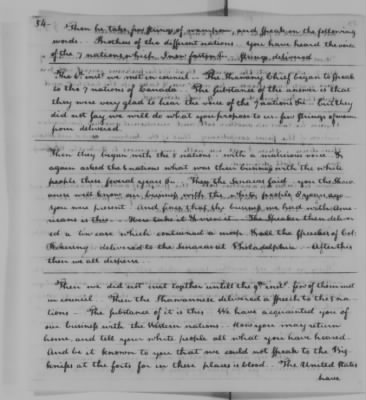 54-
Then he take few strings of wampum, and speak in the following
words. Brothers of the different nations. You have heard the voice
of the 7 nations which I now fasten. Strings delivered
The 8 inst we met in council. The Shawany Chief began to speak
to the 7 nations of Canada. The substance of the answer is that
they were very glad to hear the voice of the 7 nations &c. but they
did not say we will do what you propose to us. few strings of wam
pum delivered.
Then they began with the 5 nations with a malicious voice &
again asked the 5 nations what was their business with the white
people these several years. Then the Senecas said you the Shaw
anese will know our business with the white people
you were present And since that the business we had with Ame-
ricans is this Here take it & view it. The Speaker then deliver
ed a law case which contained a most all the speeches of Col:
Pickering delivered to the Senacas at Philadelphia. After this
then we all disperse.
Then we did not met together untill the 9th inst few of them met
in council. Then the Shawannese delivered a speech to the 5 na
tions The substance of it is this. We have acquainted you of
our business with the Western nations. Now you may return
home, and tell your white people all what you have heard.
And be it known to you that we could not speak to the Big
knifes at the forts for in these places is blood. The United States
have